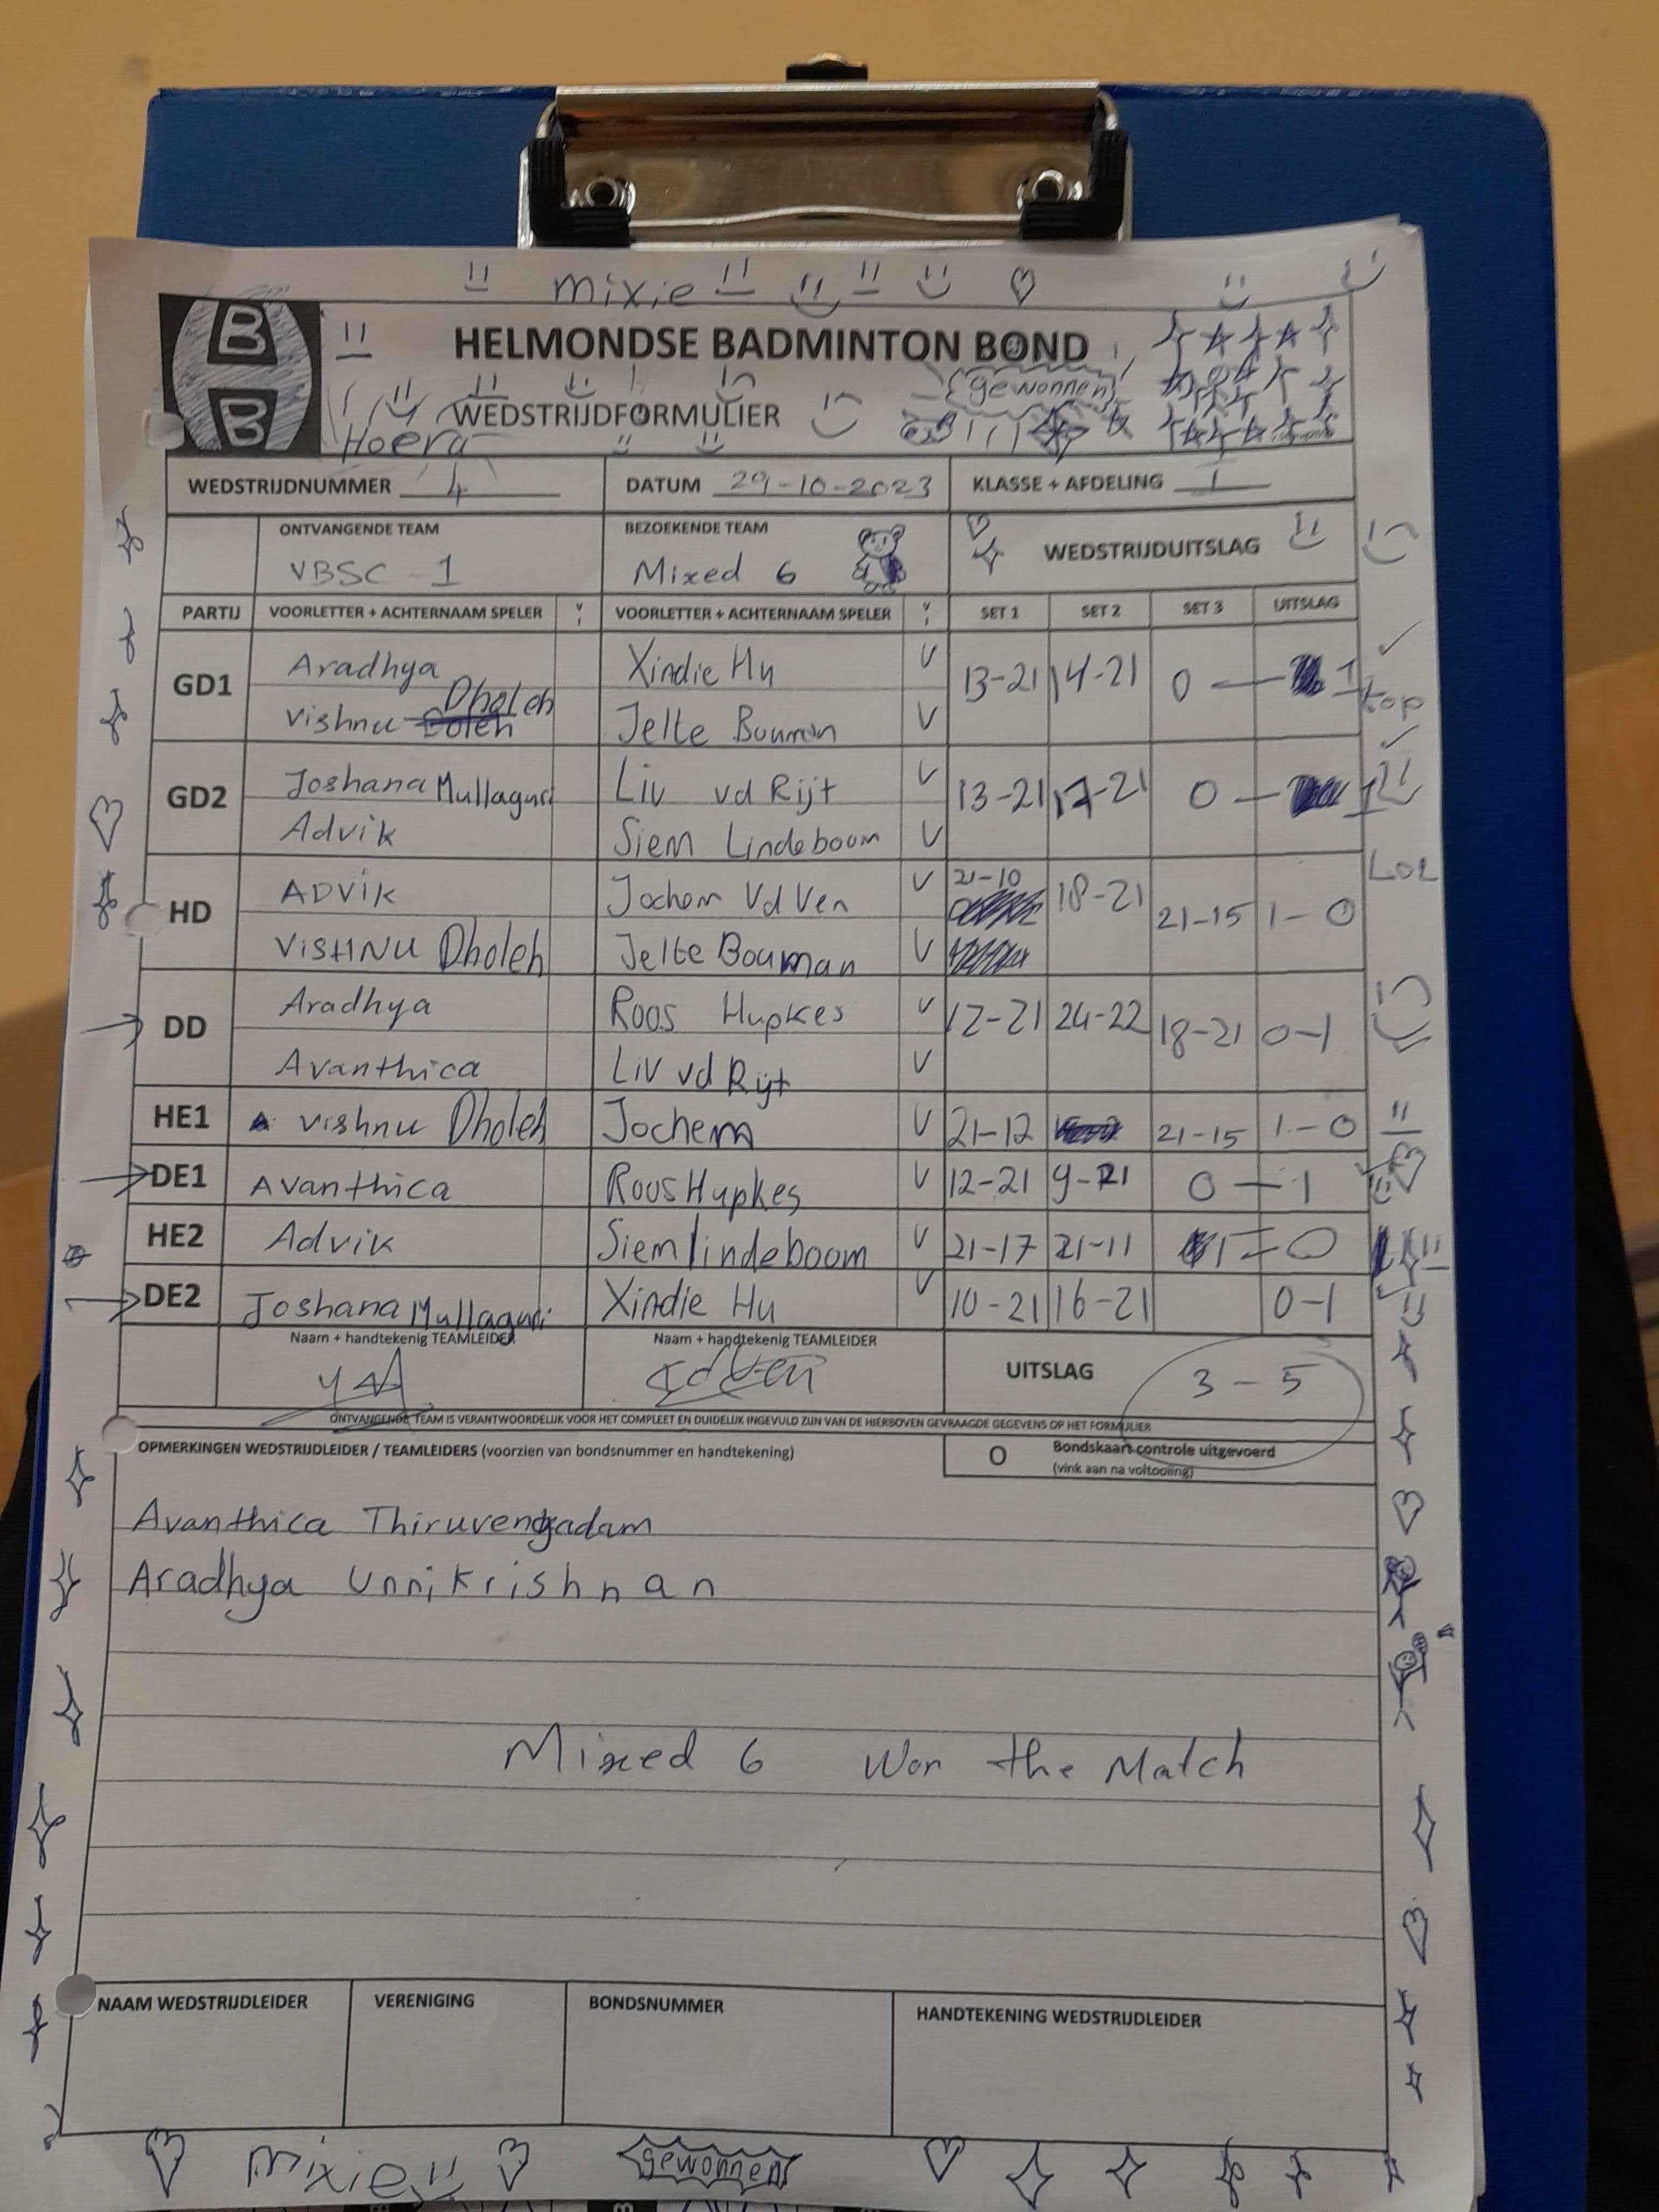 mixie
B
B
HELMONDSE BADMINTON BOND
gewonnen
WEDSTRIJDFORMULIER
Hoera
WEDSTRIJDNUMMER 4 DATUM 29-10-2023 KLASSE + AFDELING 1
ONTVANGENDE TEAM BEZOEKENDE TEAM
VBSC 1 Mixed 6 WEDSTRIJDUITSLAG
PARTIJ VOORLETTER + ACHTERNAAM SPELER VOORLETTER + ACHTERNAAM SPELER SET 1 SET 2 SET 3 UITSLAG
GD1 Aradhya Xindie Hu V 13-21 14-21 0 - 1
Vishnu Dholeh Jelte Bouman V
top
GD2 Joshana Mullaguri Liv vd Rijt V 13-21 17-21 0 - 1
Advik Siem Lindeboom V
LOL
HD ADVIK Jochem Vd Ven V 21-10 18-21 21-15 1-0
VISHNU Dholeh Jelte Bouman V
DD Aradhya Roos Hupkes V 12-21 24-22 18-21 0-1
Avanthica Liv vd Rijt V
HE1 Vishnu Dholeh Jochem V 21-12 21-15 1-0
DE1 Avanthica Roos Hupkes V 12-21 9-21 0-1
HE2 Advik Siem lindeboom V 21-17 21-11 1-0
DE2 Joshana Mullaguri Xindie Hu V 10-21 16-21 0-1
Naam + handtekenig TEAMLEIDER Naam + handtekenig TEAMLEIDER
UITSLAG 3-5
ONTVANGENDE TEAM IS VERANTWOORDELIJK VOOR HET COMPLEET EN DUIDELIJK INGEVULD ZIJN VAN DE HIERBOVEN GEVRAAGDE GEGEVENS OP HET FORMULIER
OPMERKINGEN WEDSTRIJDLEIDER / TEAMLEIDERS (voorzien van bondsnummer en handtekening) O Bondskaart controle uitgevoerd
(vink aan na voltooiing)
Avanthica Thiruvengadam
Aradhya Unnikrishnan
Mixed 6 Won the Match
NAAM WEDSTRIJDLEIDER VERENIGING BONDSNUMMER HANDTEKENING WEDSTRIJDLEIDER
mixie gewonnen